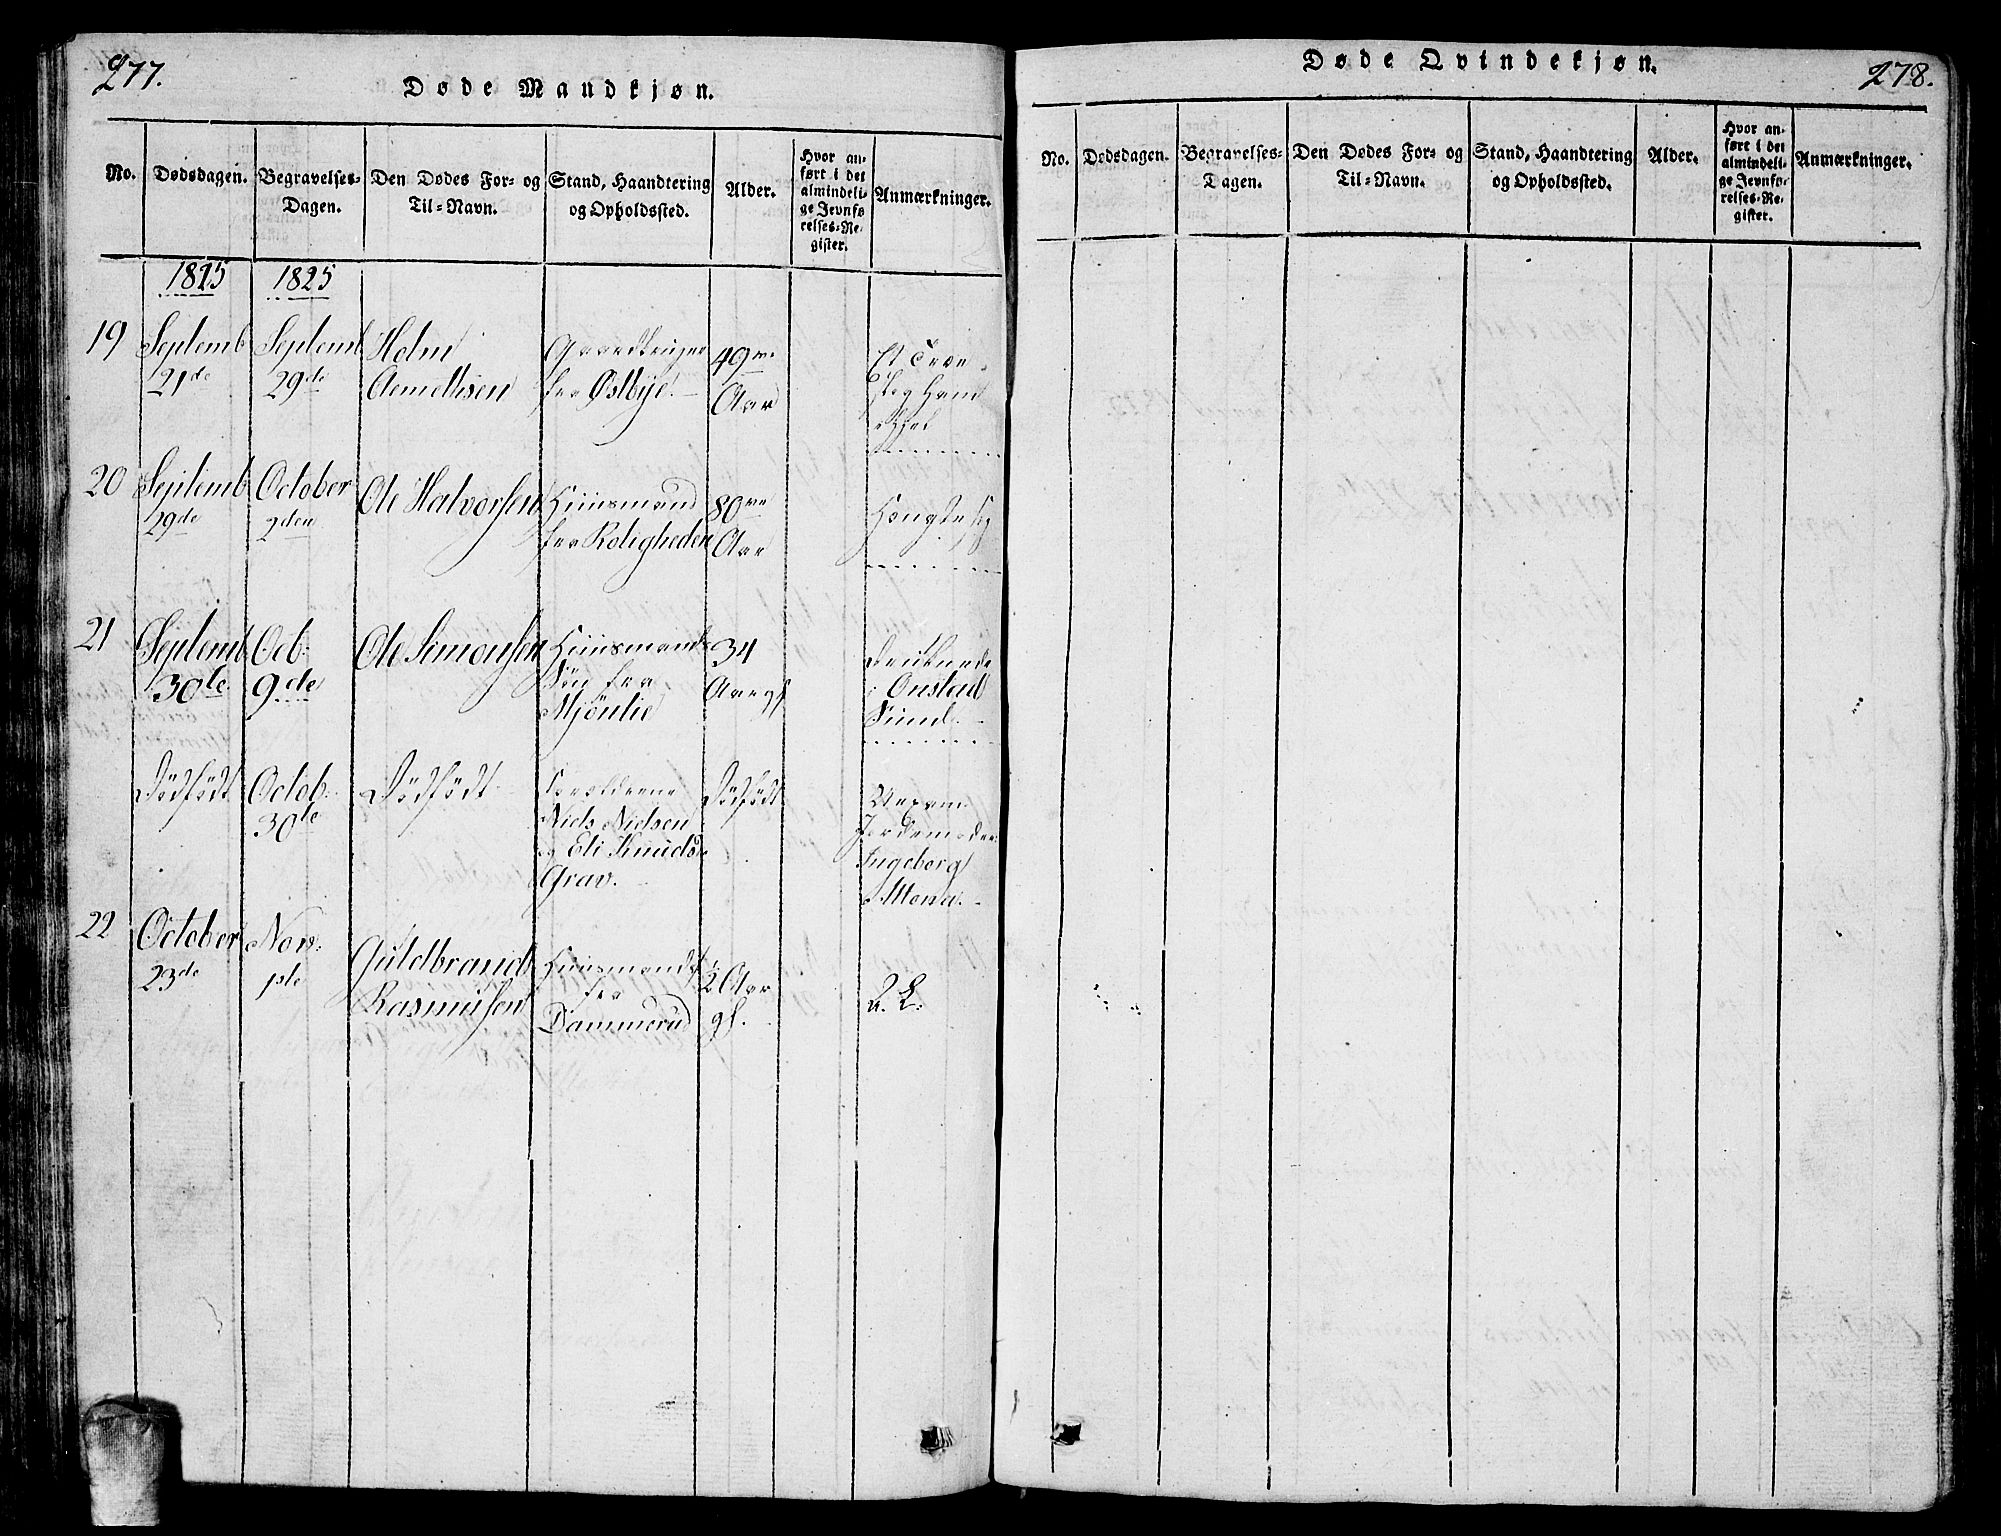 277.
Døde Mandkjøn.
No.
Dødsdagen.
Begravelses-
Dagen.
Den Dødes For- og
Til-Navn.
Stand, Haandtering
og Opholdssted.
Alder.
Hvor an-
ført i det
almindeli-
ge Jevnfø-
relses-Re-
gister.
Anmærkninger.
1825
1825
19
Septemb
21de
Septemb
29de
Holm
Gaardbruger
fra Østbye.
49
Aar
Et Træe
20
Septemb
29de
October
2den
Ole Halvorsen
Huusmand
fra Roligheden
80
Aar
Hængte sig
21
Septemb
30te
Octb:
9de
Ole Simonsen
Huusmands
Søn fra
Mjönlie
34
Aar gl
Druknede
i Onstad
Sund.
Dödfödt
Octob:
30te
Dödfödt
Forældrene
Niels Nielsen
og Eli Knudsd
Grav.
Dödfödt
Jordemoder
Ingeborg
Mona.
22
October
23de
Nov:
1ste
Guldbrand
Rasmusen
Huusmands
fra
Dammerud
2 Aar
gl.
Døde Qvindekjøn.
278.
No.
Dødsdagen.
Begravelses-
Dagen.
Den Dødes For- og
Til-Navn.
Stand, Haandtering
og Opholdssted.
Alder.
Hvor an-
ført i det
almindeli-
ge Jevnfø-
relses-Re-
gister.
Anmærkninger.